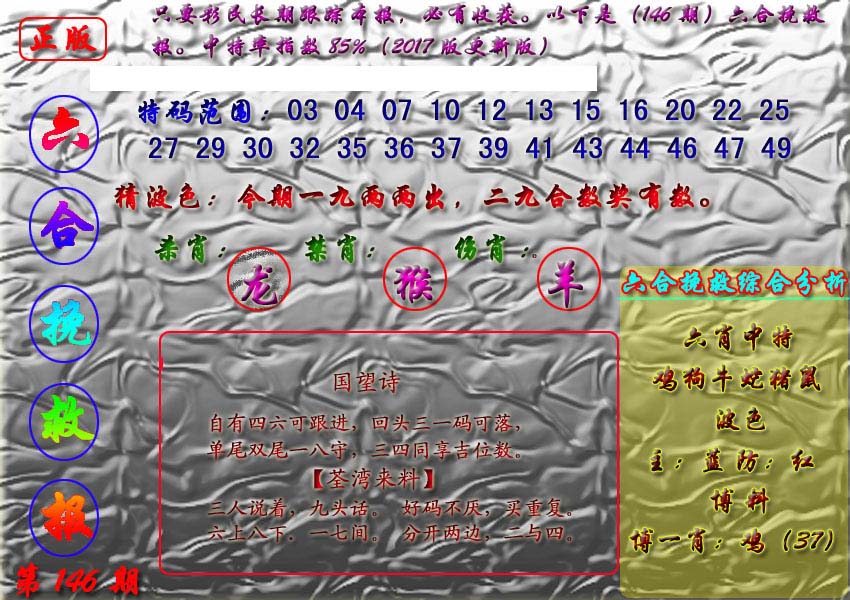 正版
只要彩民长期跟踪本报，必有收获。以下是（146期）六合挽救
报。中特率指数85%（2017版更新版）
六合挽救报
第146期
特码范围：03 04 07 10 12 13 15 16 20 22 25
27 29 30 32 35 36 37 39 41 43 44 46 47 49
猜波色：今期一九两两出，二九合数奖有数。
杀肖：龙 禁肖：猴 伤肖：羊
国望诗
自有四六可跟进，回头三一码可落，
单尾双尾一八守，三四同享吉位数。
【荃湾来料】
三人说着，九头话。 好码不厌，买重复。
六上八下．一七间。 分开两边，二与四。
六合挽救综合分析
六肖中特
鸡狗牛蛇猪鼠
波色
主：蓝防：红
博料
博一肖：鸡（37）